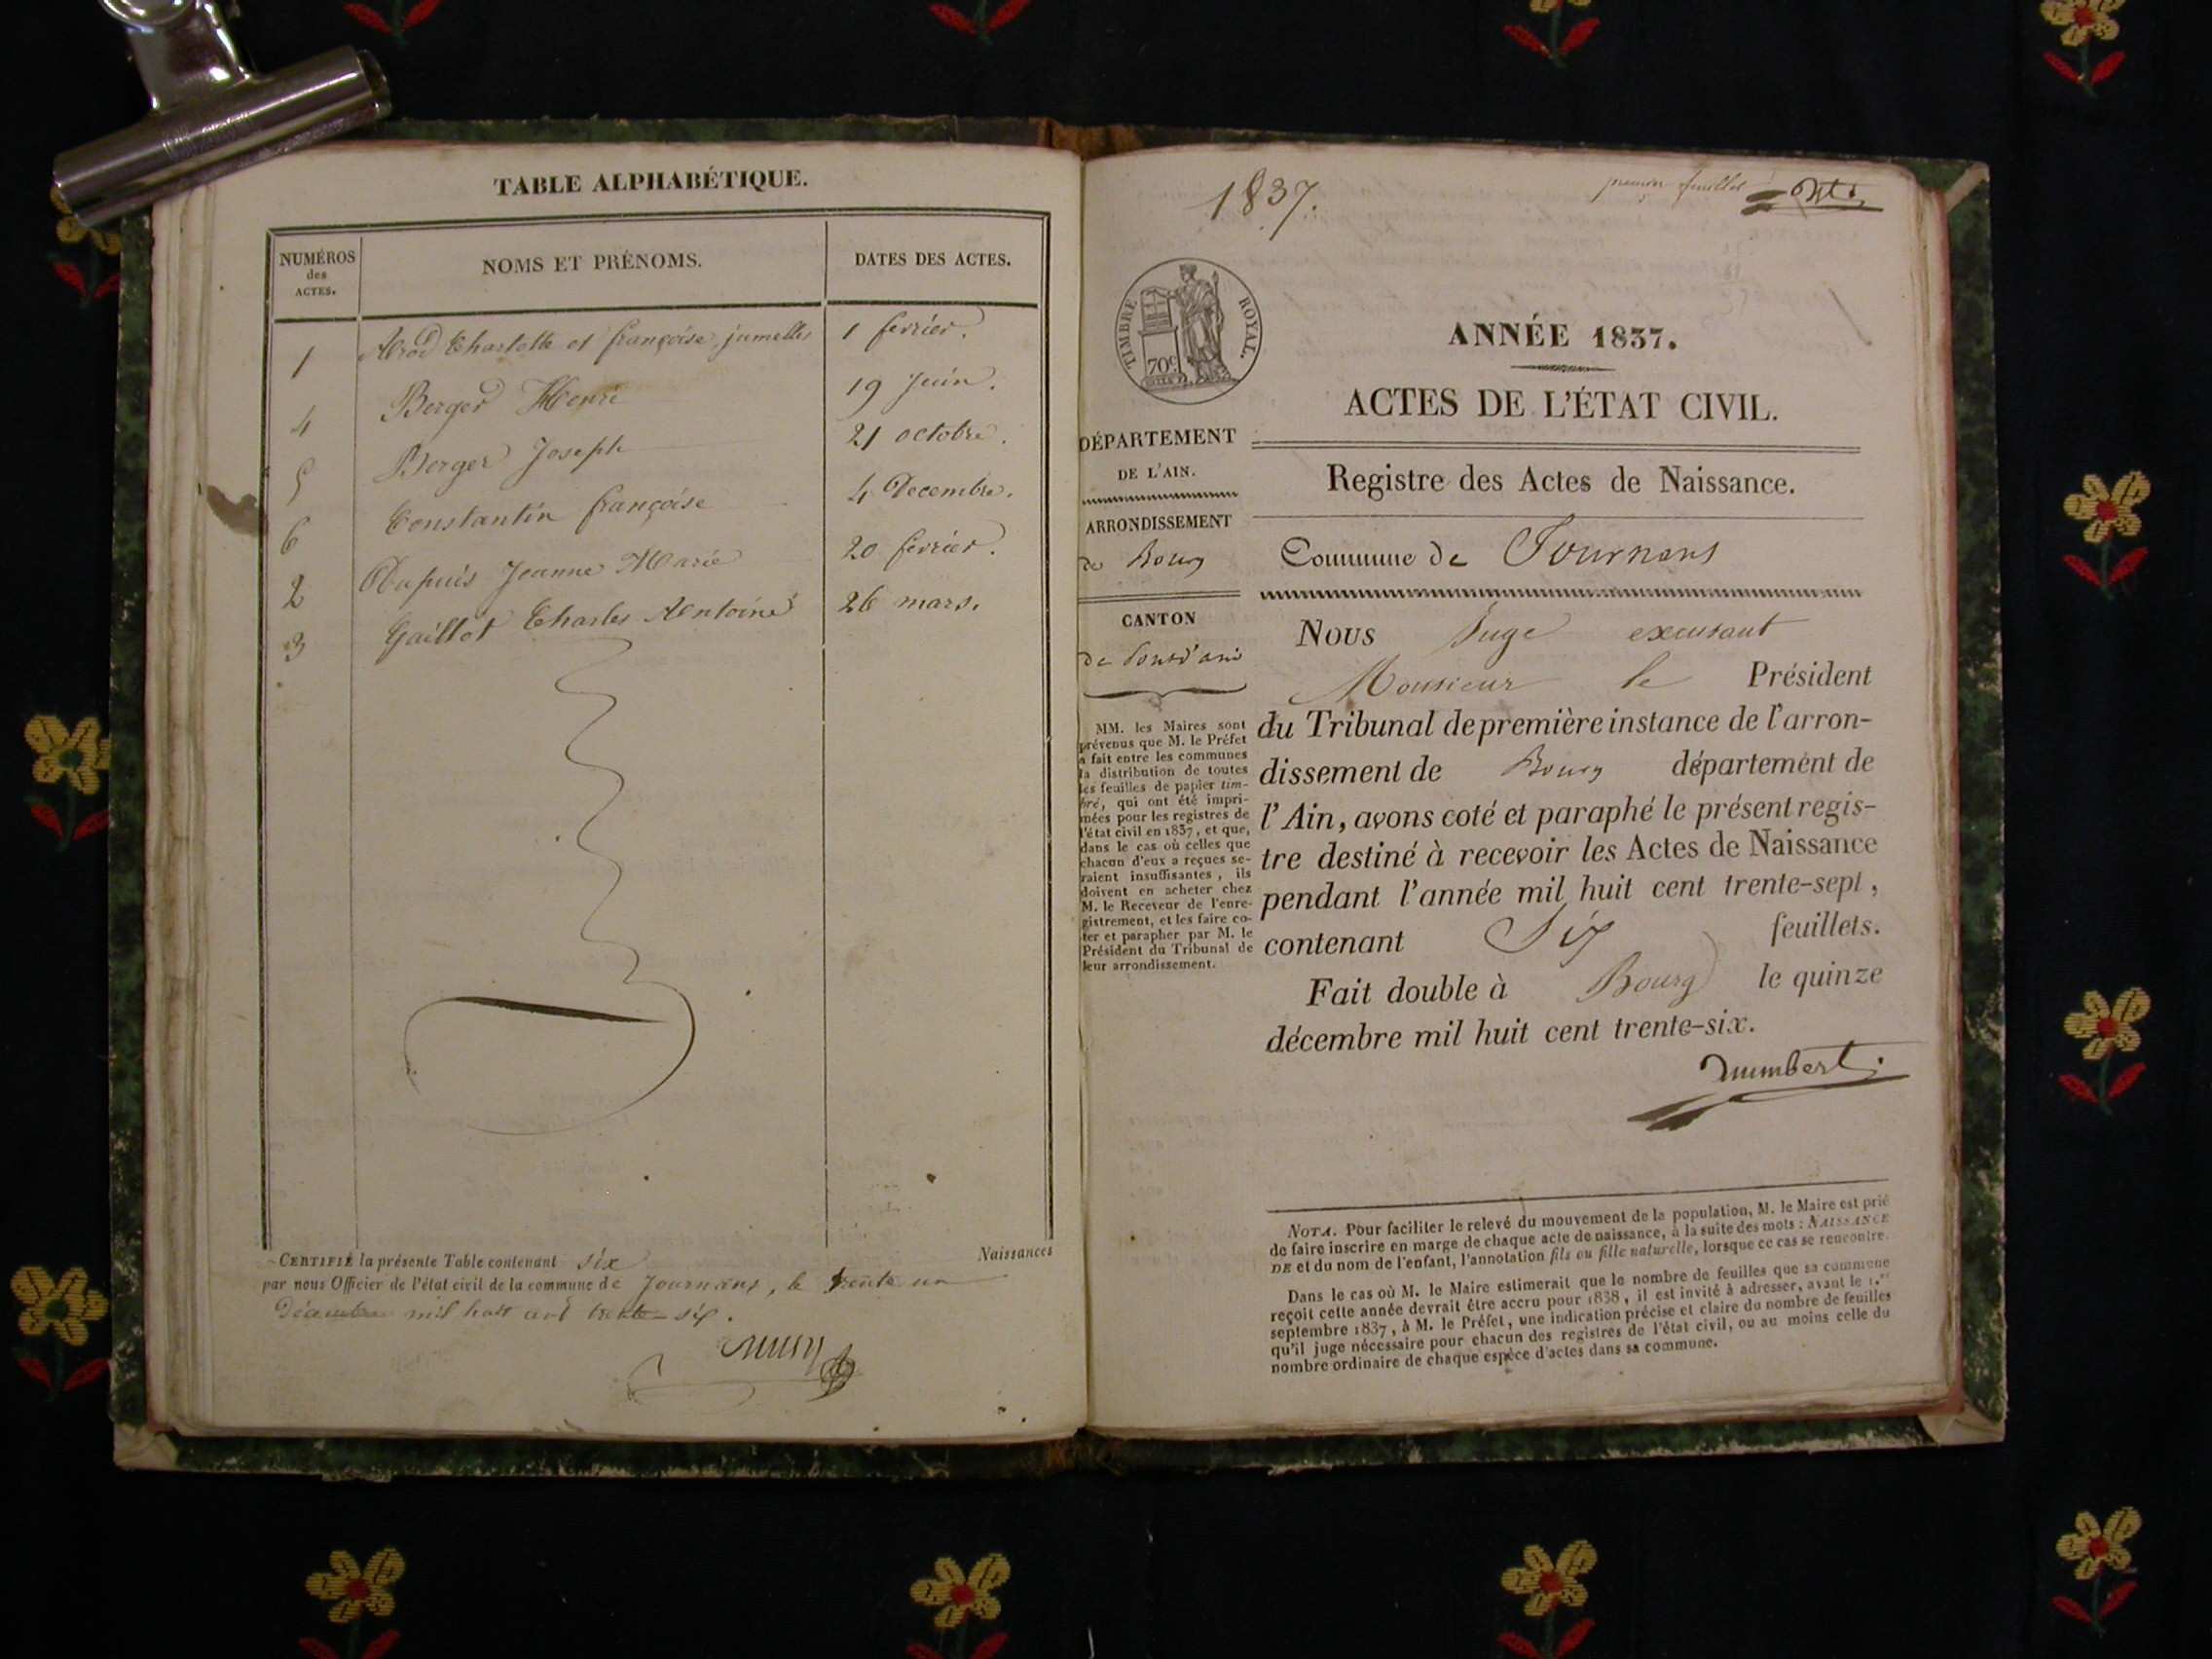 TABLE ALPHABÉTIQUE.
NUMÉROS
des
ACTES.
NOMS ET PRÉNOMS.
DATES DES ACTES.
1 Charlotte et françoise jumelles 1 fevrier.
4 Berger Henri 19 Juin.
5 Berger Joseph 21 octobre.
6 Constantin françoise 4 Decembre.
2 Dupuis Jeanne Marie 20 fevrier.
3 Gaillot Charles Antoine 26 mars.
CERTIFIÉ la présente Table contenant six Naissances
par nous Officier de l'état civil de la commune de Journans, le trente un
Décembre mil huit cent trente-six.
1837.
premier feuillet
TIMBRE ROYAL.
70c
ANNÉE 1837.
ACTES DE L'ÉTAT CIVIL.
DÉPARTEMENT
DE L'AIN.
ARRONDISSEMENT
de Bourg
CANTON
de Pont d'ain
MM. les Maires sont
prévenus que M. le Préfet
a fait entre les communes
la distribution de toutes
les feuilles de papier tim-
bré, qui ont été impri-
mées pour les registres de
l'état civil en 1837, et que,
dans le cas où celles que
chacun d'eux a reçues se-
raient insuffisantes, ils
doivent en acheter chez
M. le Receveur de l'enre-
gistrement, et les faire co-
ter et parapher par M. le
Président du Tribunal de
leur arrondissement.
Registre des Actes de Naissance.
Commune de Journans
Nous Juge excusant
Monsieur le Président
du Tribunal de première instance de l'arron-
dissement de Bourg département de
l'Ain, avons coté et paraphé le présent regis-
tre destiné à recevoir les Actes de Naissance
pendant l'année mil huit cent trente-sept,
contenant Six feuillets.
Fait double à Bourg le quinze
décembre mil huit cent trente-six.
NOTA. Pour faciliter le relevé du mouvement de la population, M. le Maire est prié
de faire inscrire en marge de chaque acte de naissance, à la suite des mots : NAISSANCE
DE et du nom de l'enfant, l'annotation fils ou fille naturelle, lorsque ce cas se rencontre.
Dans le cas où M. le Maire estimerait que le nombre de feuilles que sa commune
reçoit cette année devrait être accru pour 1838, il est invité à adresser, avant le 1.er
septembre 1837, à M. le Préfet, une indication précise et claire du nombre de feuilles
qu'il juge nécessaire pour chacun des registres de l'état civil, ou au moins celle du
nombre ordinaire de chaque espèce d'actes dans sa commune.